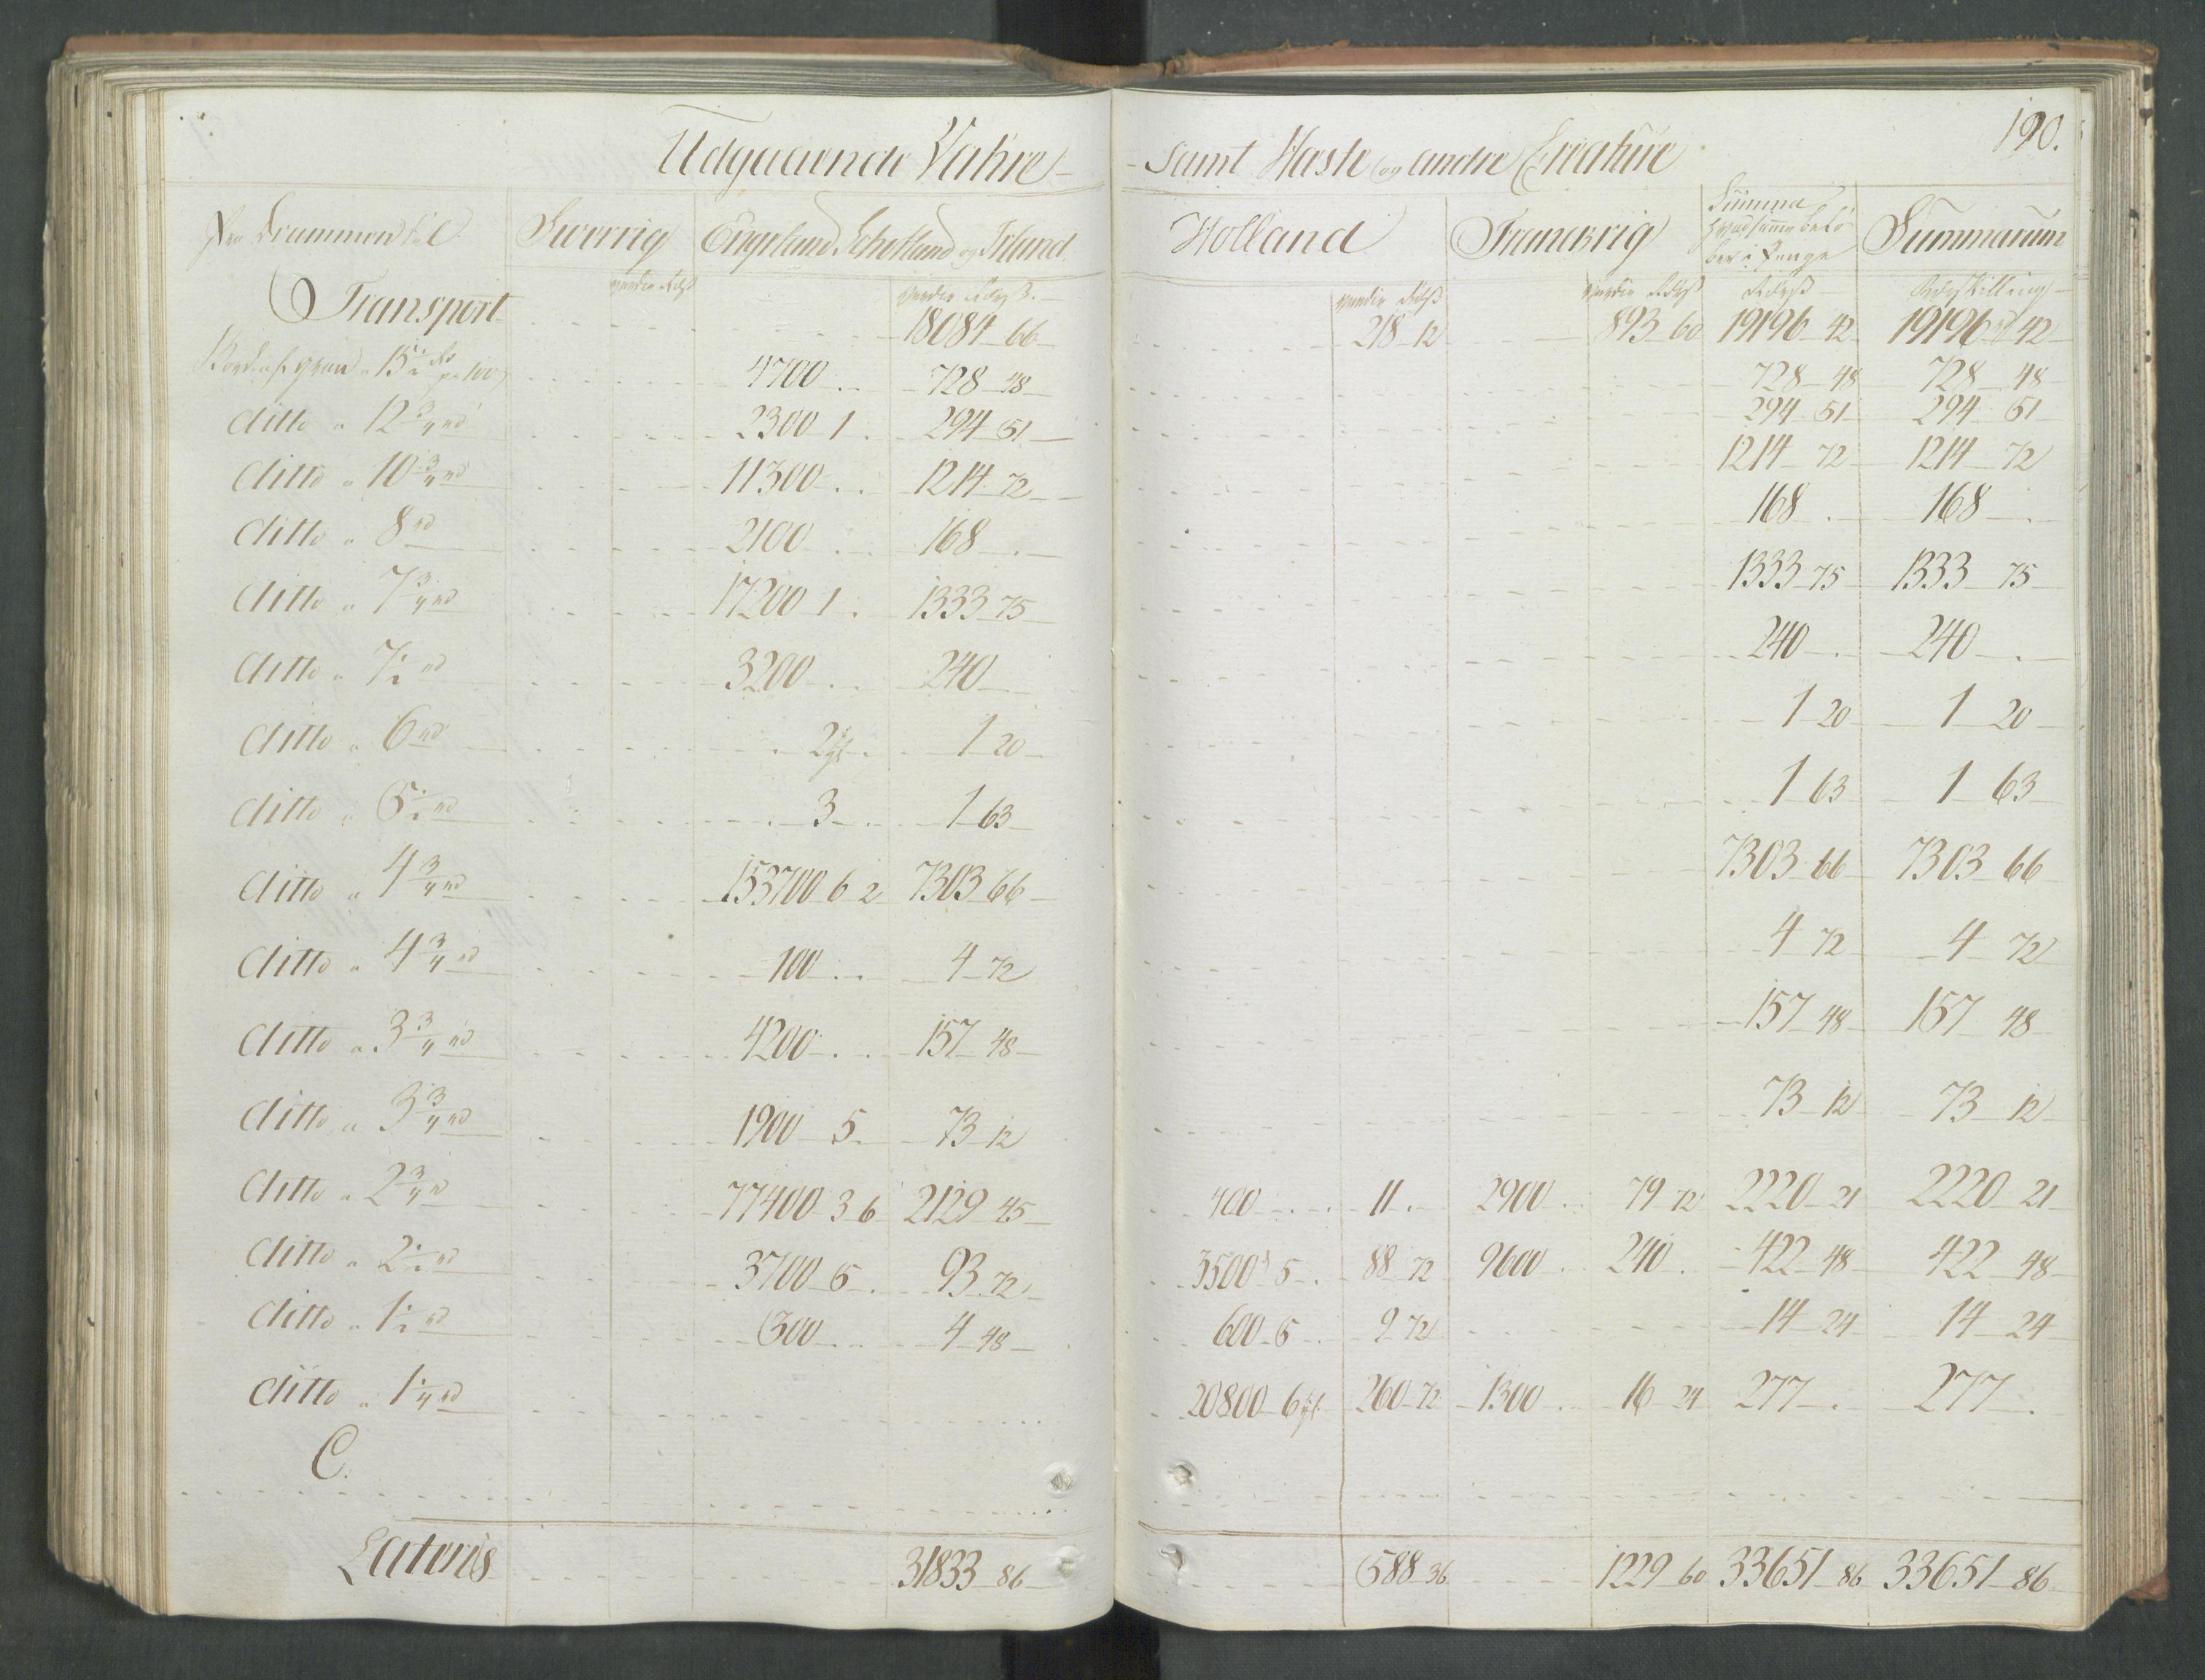 Udgaaende Vahre - - Samt Heste og andre Creature 190.
Fra Drammen til Sverrig Engeland, Schotland og Irland Holland Franckrig Summa Summarum
Transport 18084 66 218 12 893 60 19196 42 19196 42
Bord af gran a 15 4700 728 48 728 48 728 48
ditto a 12 3/4 rd 2300 1 294 51 294 51 294 51
ditto a 10 3/4 rd 11300 1214 72 1214 72 1214 72
ditto a 8 rd 2100 168 168 168
ditto a 7 3/4 rd 17200 1 1333 75 1333 75 1333 75
ditto a 7 1/2 rd 3200 240 240 240
ditto a 6 rd 2 1 20 1 20 1 20
ditto a 5 1/2 rd 3 1 63 1 63 1 63
ditto a 4 3/4 rd 153700 6 2 7303 66 7303 66 7303 66
ditto a 4 3/4 rd 100 4 72 4 72 4 72
ditto a 3 3/4 rd 4200 157 48 157 48 157 48
ditto a 3 3/4 rd 1900 5 73 12 73 12 73 12
ditto a 2 3/4 rd 77400 3 6 2129 45 400 11 2900 79 72 2220 21 2220 21
ditto a 2 1/2 rd 3700 5 93 72 3500 5 88 72 9600 240 422 48 422 48
ditto a 1 1/2 rd 300 4 48 600 5 9 72 14 24 14 24
ditto a 1 1/4 rd 20800 6 260 72 1300 16 24 277 277
C.
Lateris 31833 86 588 36 1229 60 33651 86 33651 86